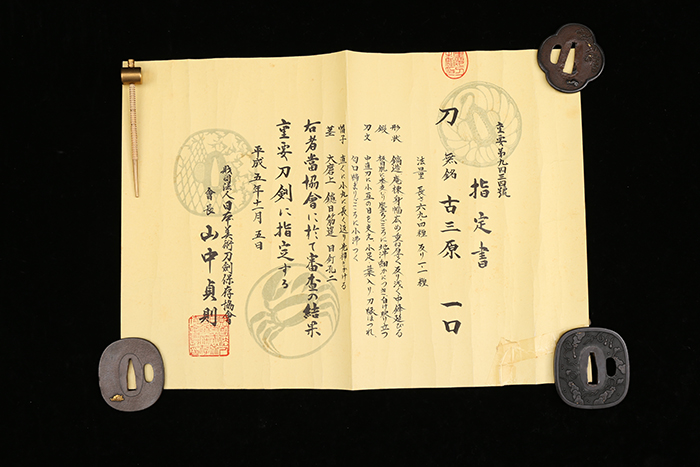 重要第九四三四號
指定書
刀 無銘 古三原 一口
法量 長さ六九四糎 反り一一糎
形状 鎬造庵棟身幅広め重ね厚く反り浅く中鋒延びる
刃文 中直刃に小互の目を交え小足、葉入り刃縁ほつれ
匂口締まりごころに小沸つく
帽子 直ぐに小丸に長く返り先掃きかける
茎 大磨上 鑢目筋違 目釘孔二
右者當協會に於て審査の結果
重要刀剣に指定する
平成五年十一月五日
財団法人日本美術刀剣保存協會
會長 山中貞則